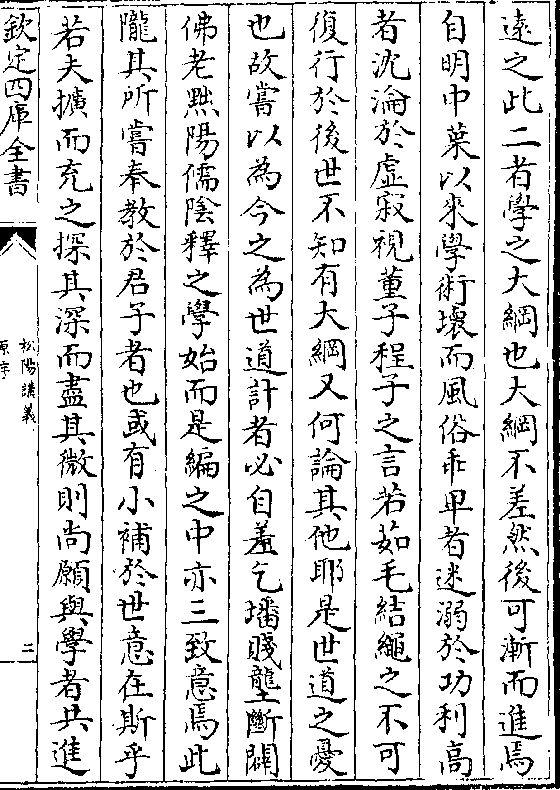 遠之此二者學之大綱也大綱不差然後可漸而進焉
自明中葉以來學術壞而風俗乖卑者迷溺於功利高
者沈淪於虛寂視董子程子之言若茹毛結繩之不可
復行於後世不知有大綱又何論其他耶是世道之憂
也故嘗以為今之為世道計者必自羞乞墦賤壟斷闢
佛老黜陽儒陰釋之學始而是編之中亦三致意焉此
隴其所嘗奉教於君子者也或有小補於世意在斯乎
若夫擴而充之探其深而盡其微則尚願與學者共進
欽定四庫全書
松陽講義
原序
二